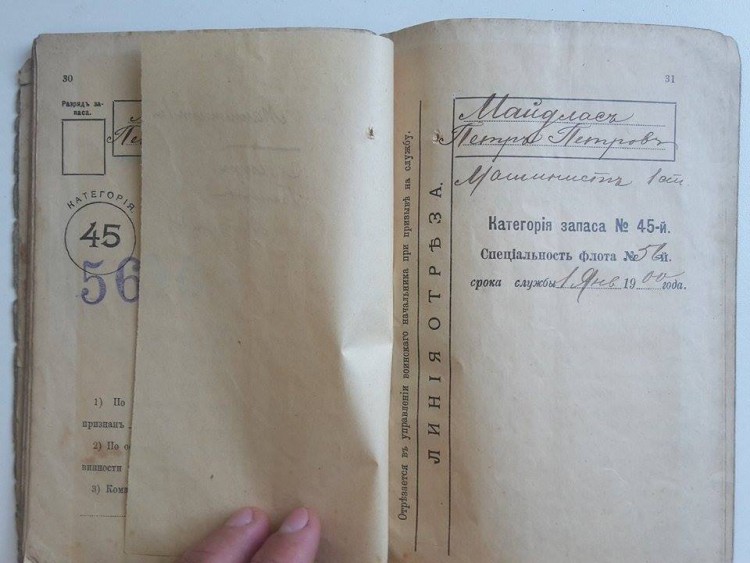 30
Разрядъ за-
паса.
КАТЕГОРІЯ
45
56
1) По
признан
2) По о
винности
3) Ком
Отрѣзается въ управленіи воинскаго начальника при призывѣ на службу.
ЛИНІЯ ОТРѢЗА.
31
Майдласъ
Петръ Петровъ
Машинистъ 1 ст
Категорія запаса № 45-й.
Спеціальность флота № 56-й.
срока службы 1 Янв 1900 года.